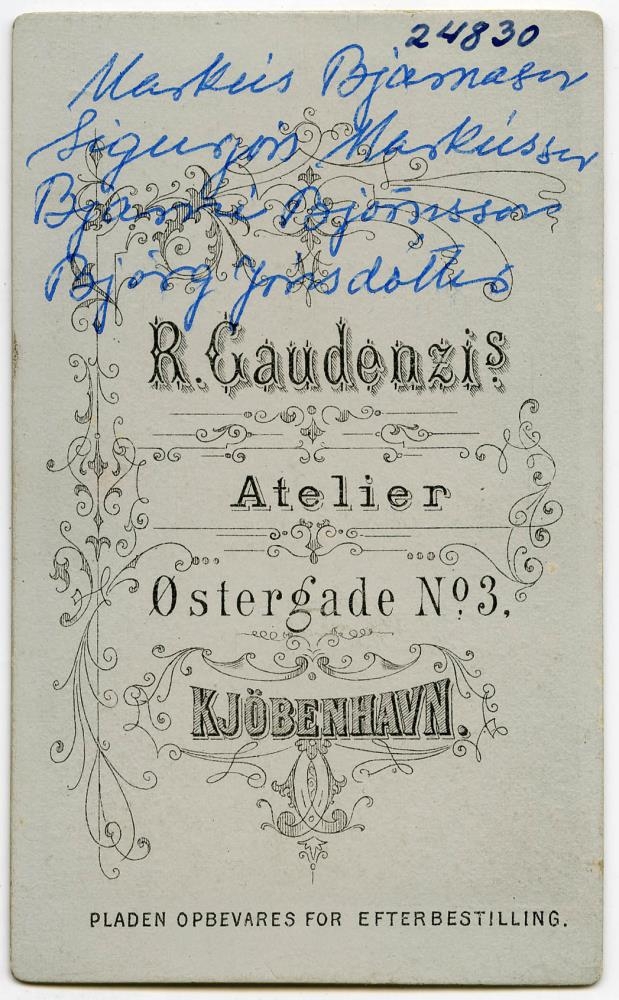 24830
Markús Bjarnason
Sigurjón Markússon
Bjarni Björnsson
Björg Jónsdóttir
R. Gaudenzis.
Atelier
Østergade No. 3,
KJÖBENHAVN.
PLADEN OPBEVARES FOR EFTERBESTILLING.